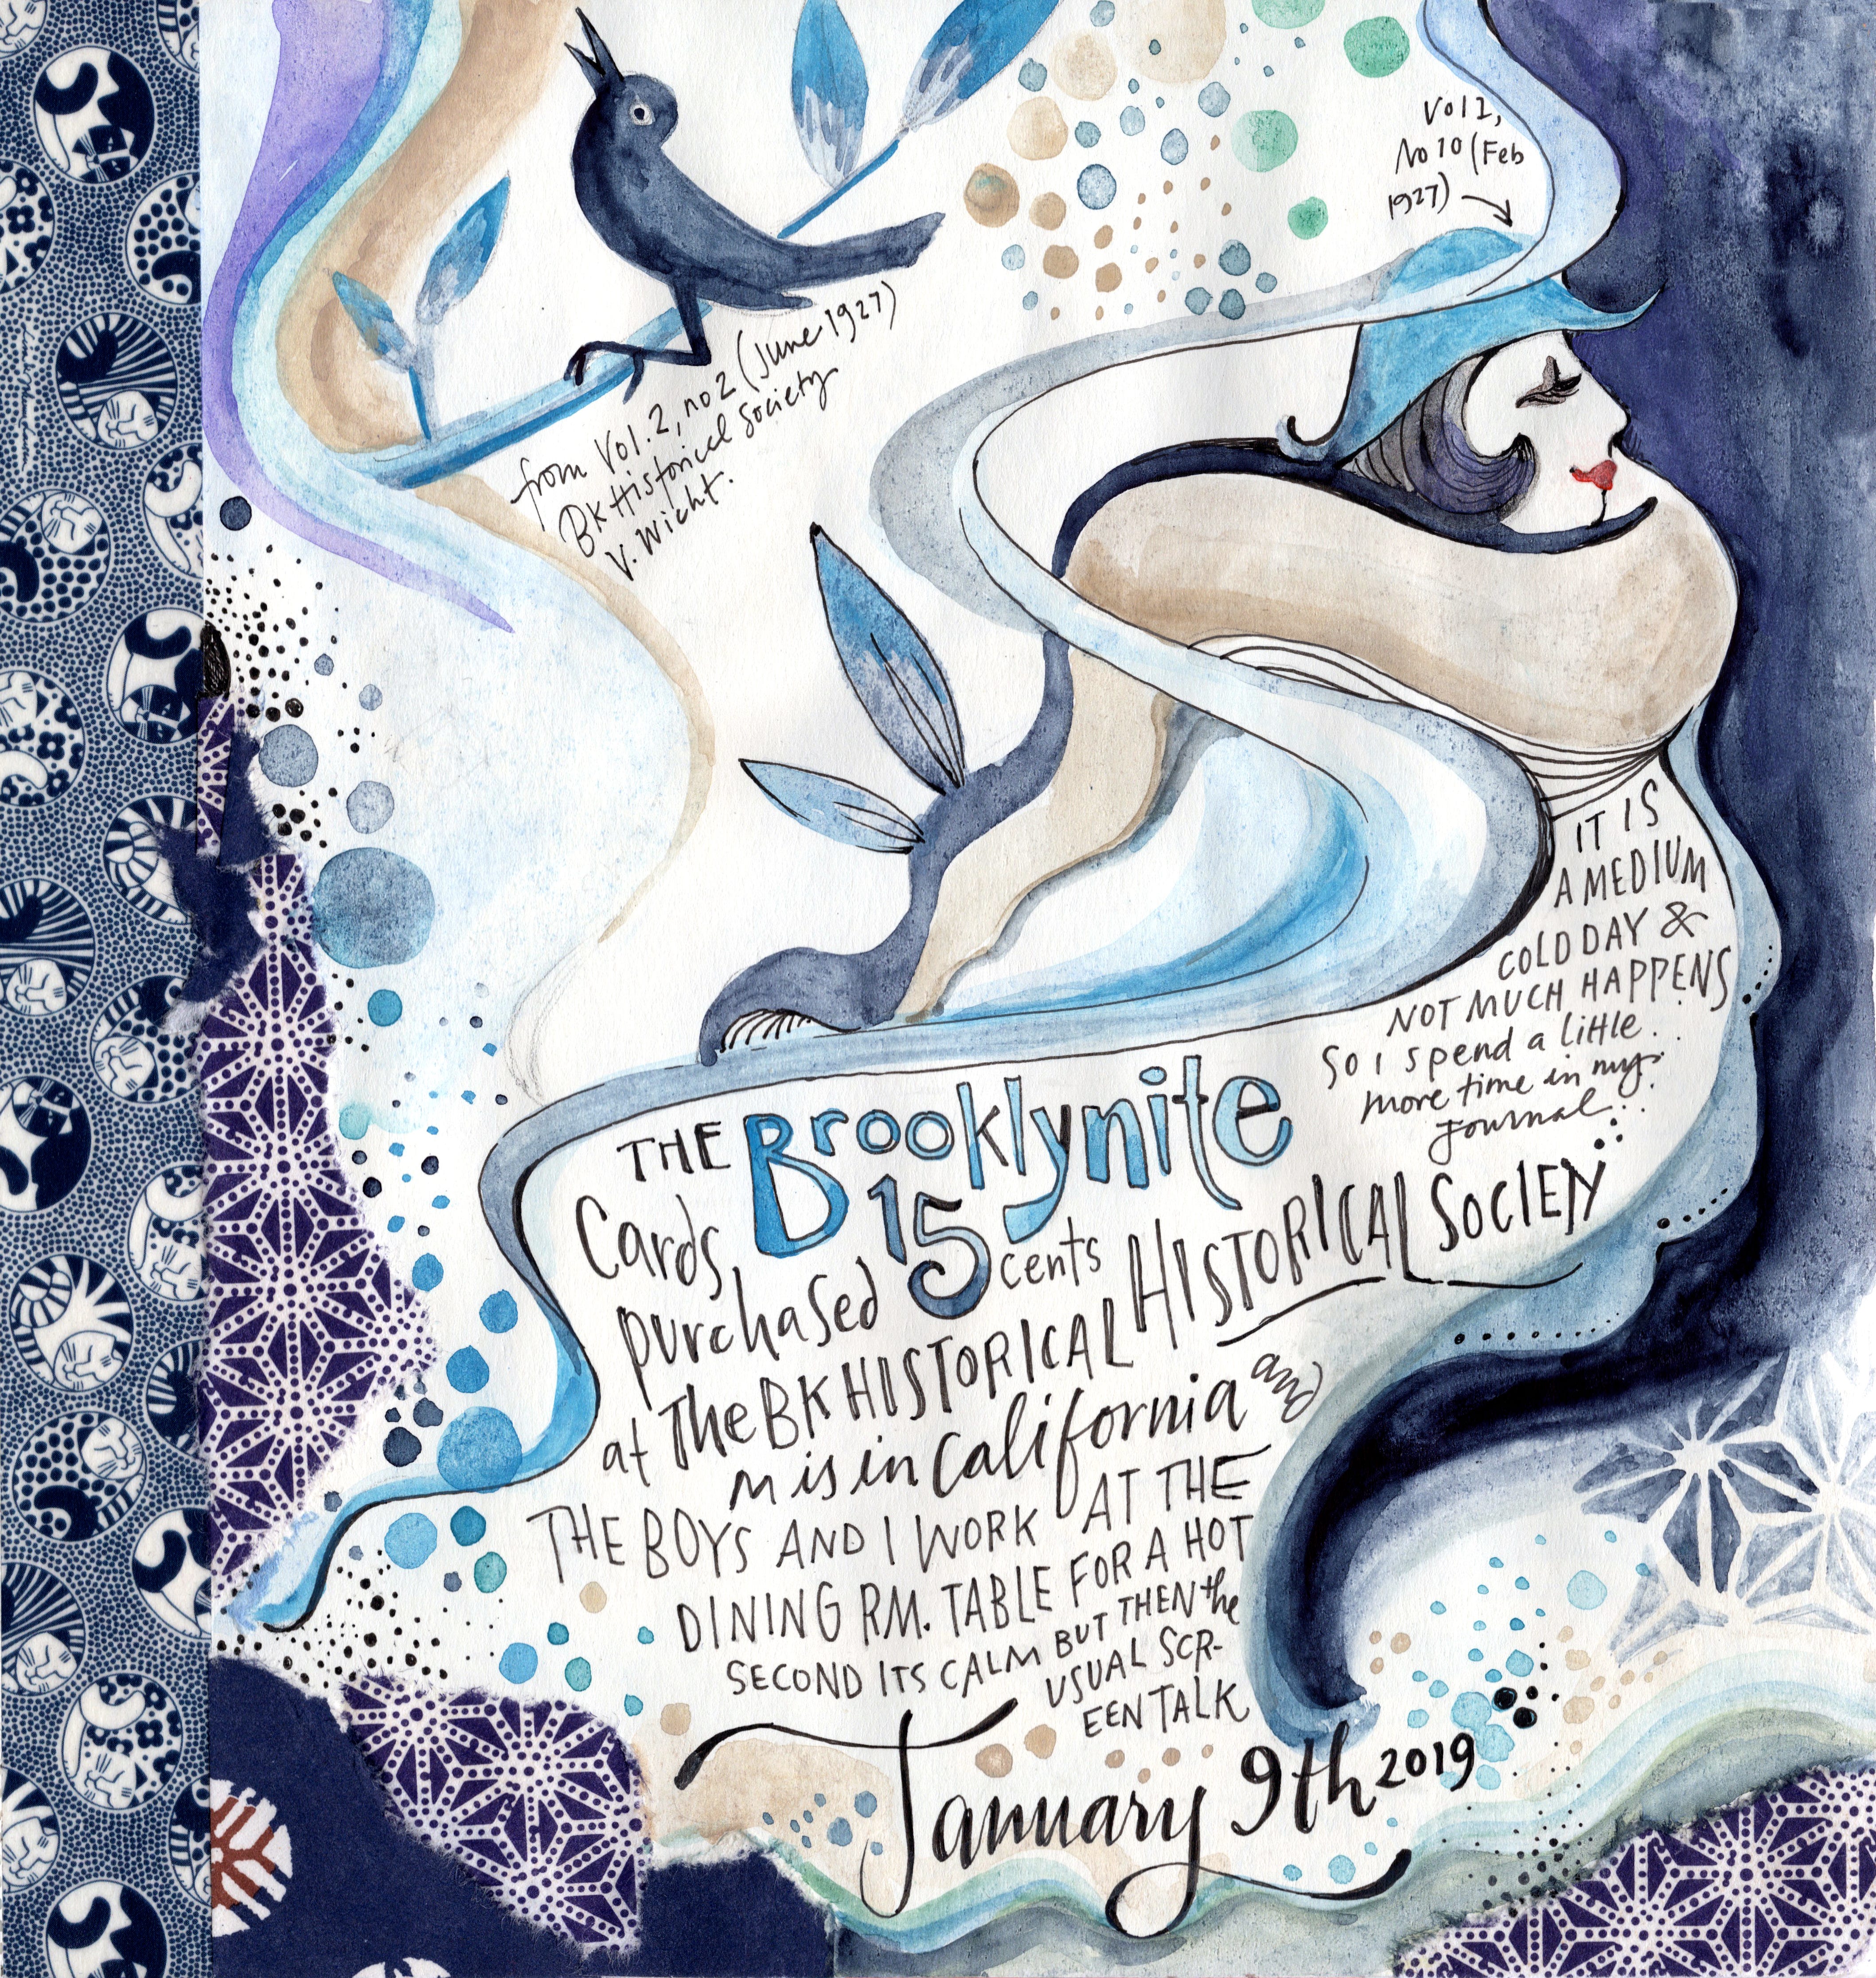 Vol 2,
No 10 (Feb
1927)
from Vol. 2, no 2 (June 1927)
BK Historical Society
V. Wicht.
IT IS
A MEDIUM
COLD DAY &
NOT MUCH HAPPENS
SO I spend a little
more time in my
journal...
THE Brooklynite
Cards 15
purchased cents HISTORICAL SOCIETY
at The BK HISTORICAL
M is in California and
THE BOYS AND I WORK AT THE
DINING RM. TABLE FOR A HOT
SECOND ITS CALM BUT THEN the
USUAL SCR-
EEN TALK
January 9th 2019